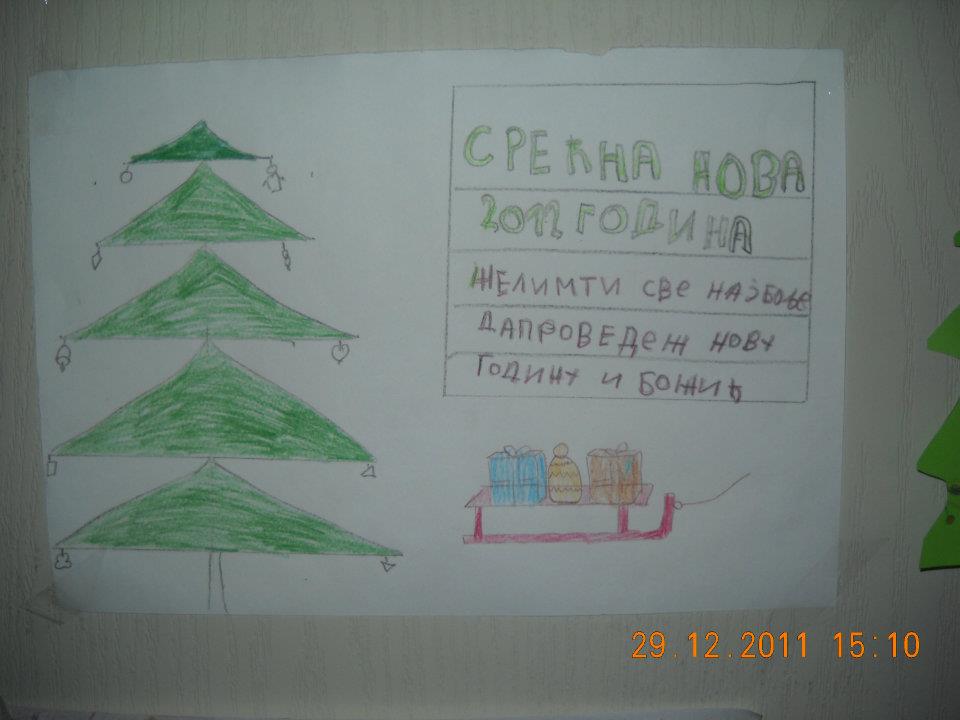 СРЕЋНА НОВА
2012 ГОДИНА
ЖЕЛИМТИ СВЕ НАЈБОЉЕ
ДАПРОВЕДЕЖ НОВУ
ГОДИНУ И БОЖИЋ
29.12.2011 15:10